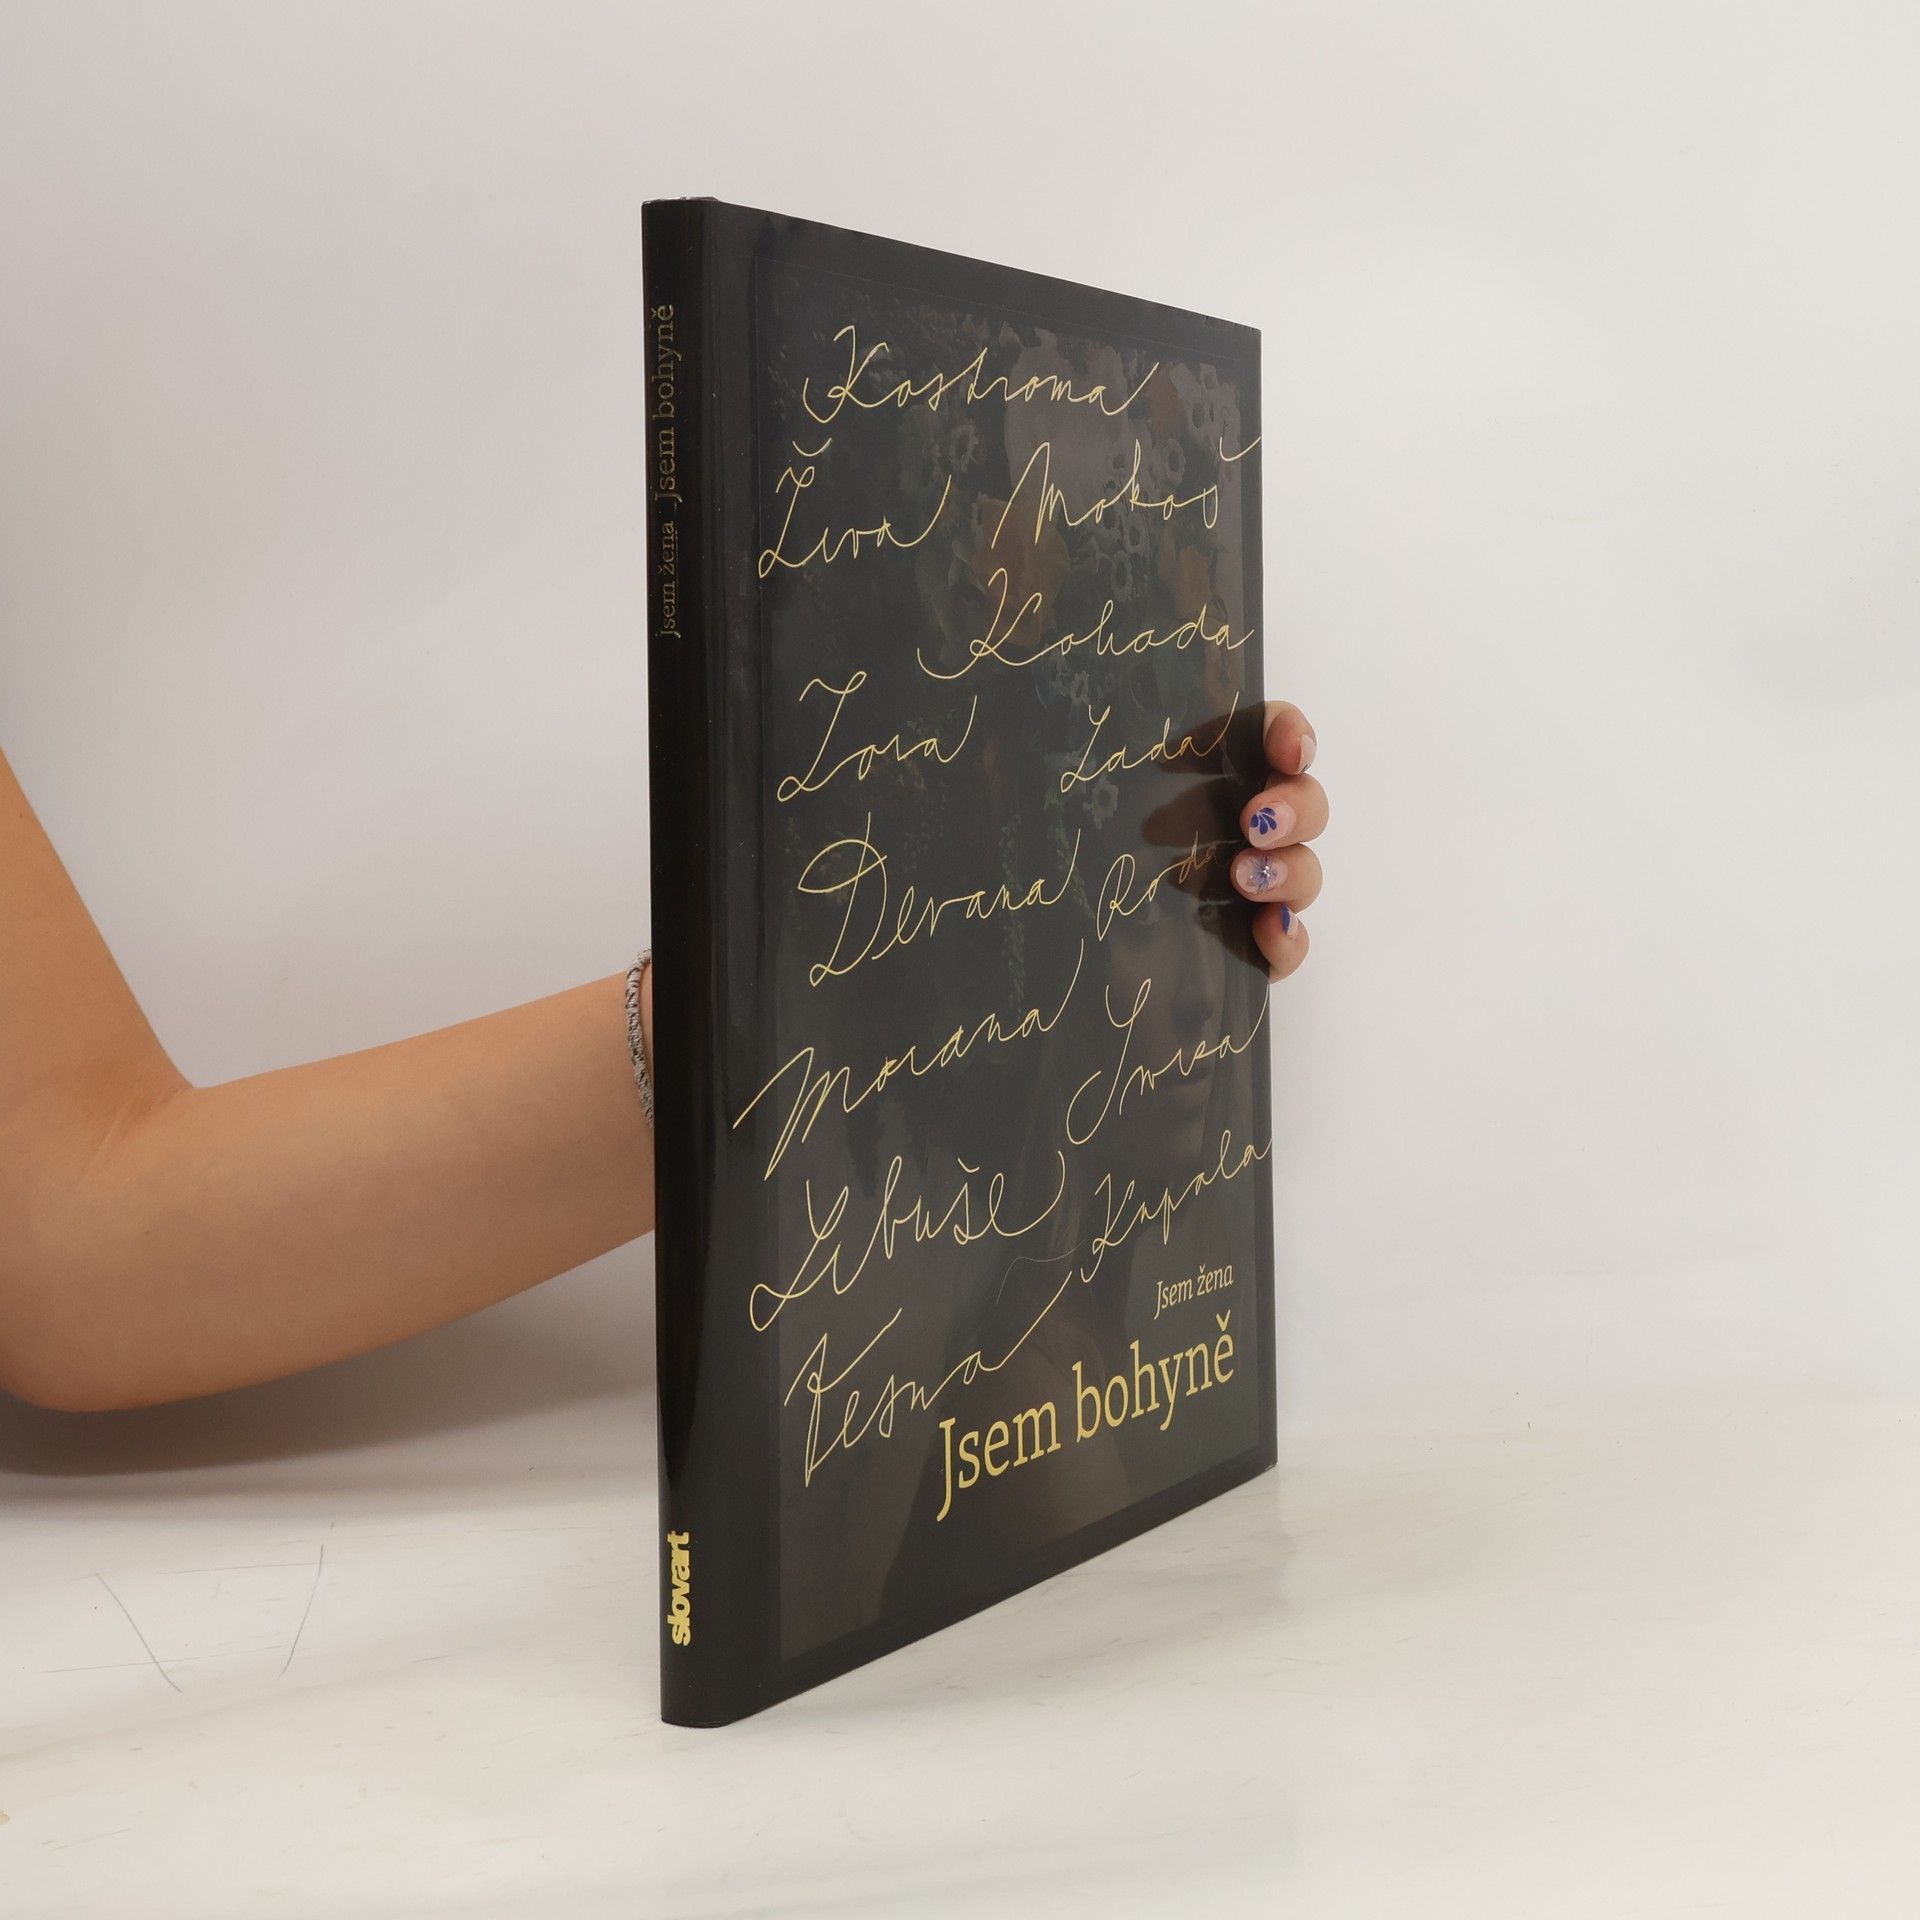 Jsem žena Jsem bohyně
slovart
Kostroma
Živa Mokoš
Koliada
Zora Lada
Devana Roda
Morana
Libuše Kupala
Vesna
Jsem žena
Jsem bohyně